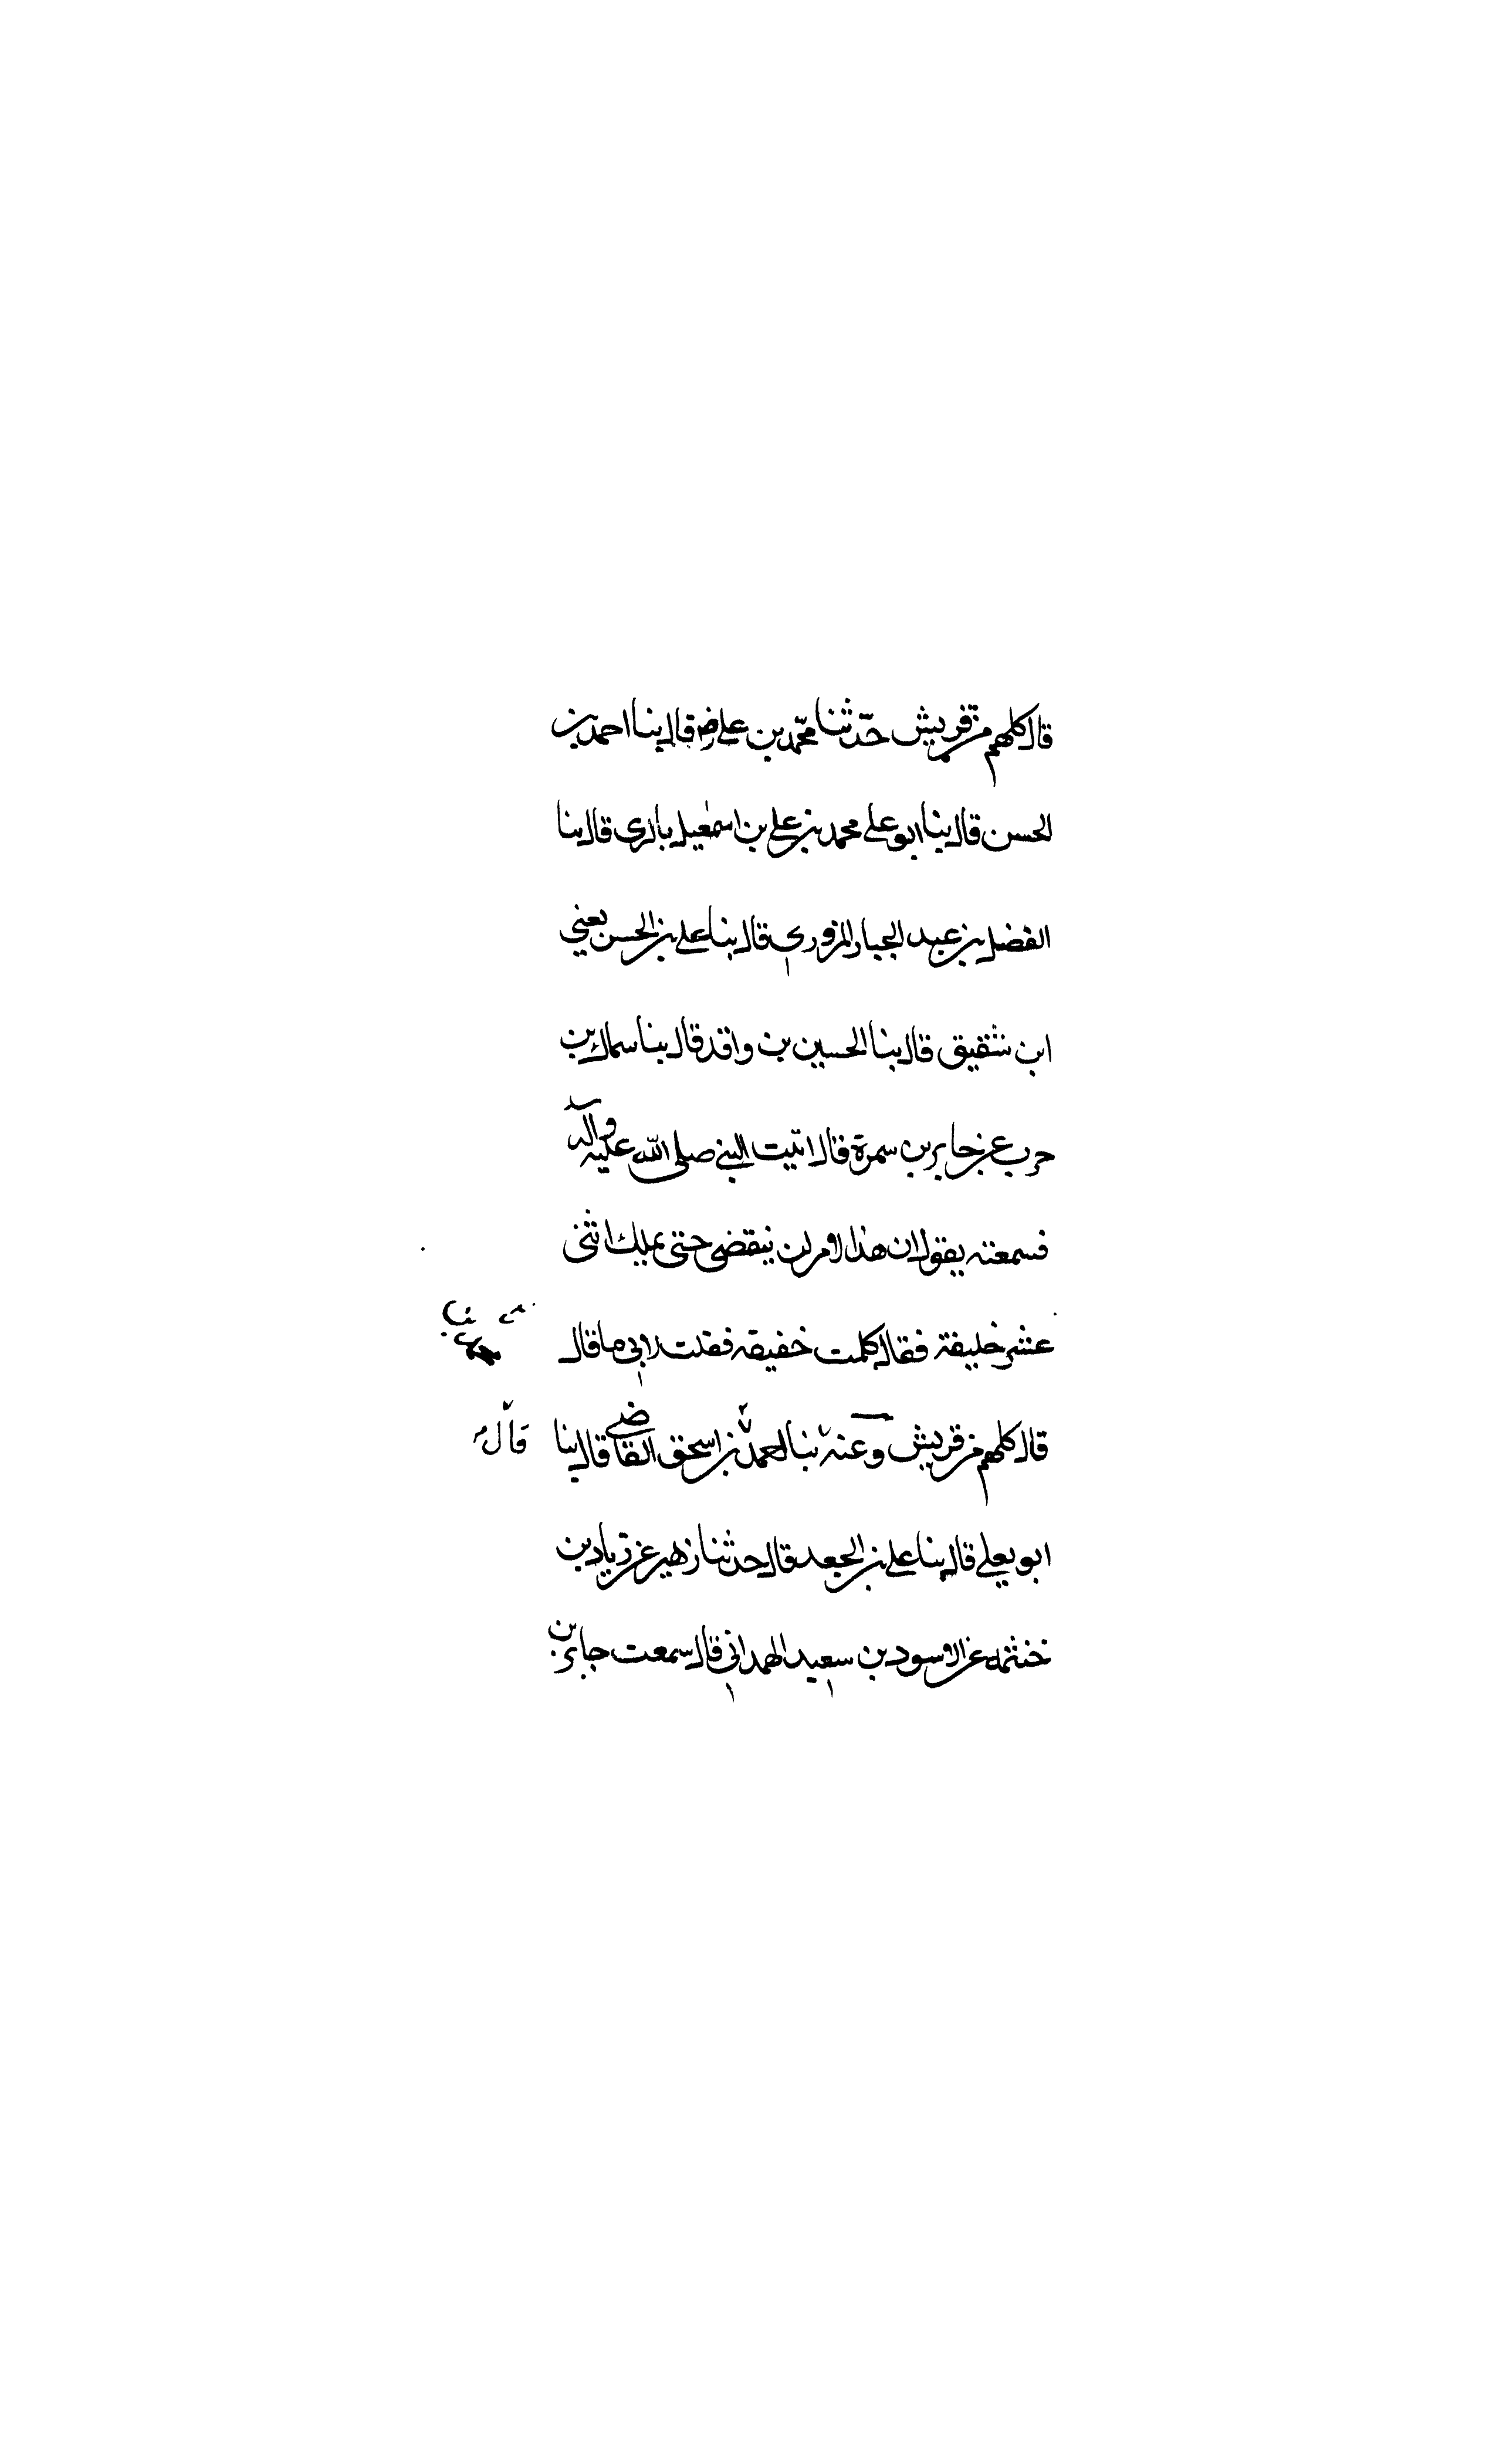 قال كلهم من قريش حدّثنا محمّد بن علي رض قال بنا احمد بن
الحسن قال بنا ابو علي محمد بن علي بن اسمعيل بالري قال بنا
الفضل بن عبد الجبار المروزي قال بنا علي بن الحسن يعني
ابن شقيق قال بنا الحسين بن واقد قال بنا سماك بن
حرب عن جابر بن سمرة قال اتيت النبي صلى الله عليه وآله
فسمعته يقول ان هذا الامر لن ينقضي حتى يملك اثنى
عشر خليفة فقال كلمت خفيفة فقلت لابي ما قال
قال كلهم من قريش وعنه بنا احمد بن اسحق القاضي قال بنا
قال
ابو يعلي قال بنا علي بن الجعد قال حدثنا زهير عن زياد بن
خنثمه عن الاسود بن سعيد الهمداني قال سمعت جابر بن